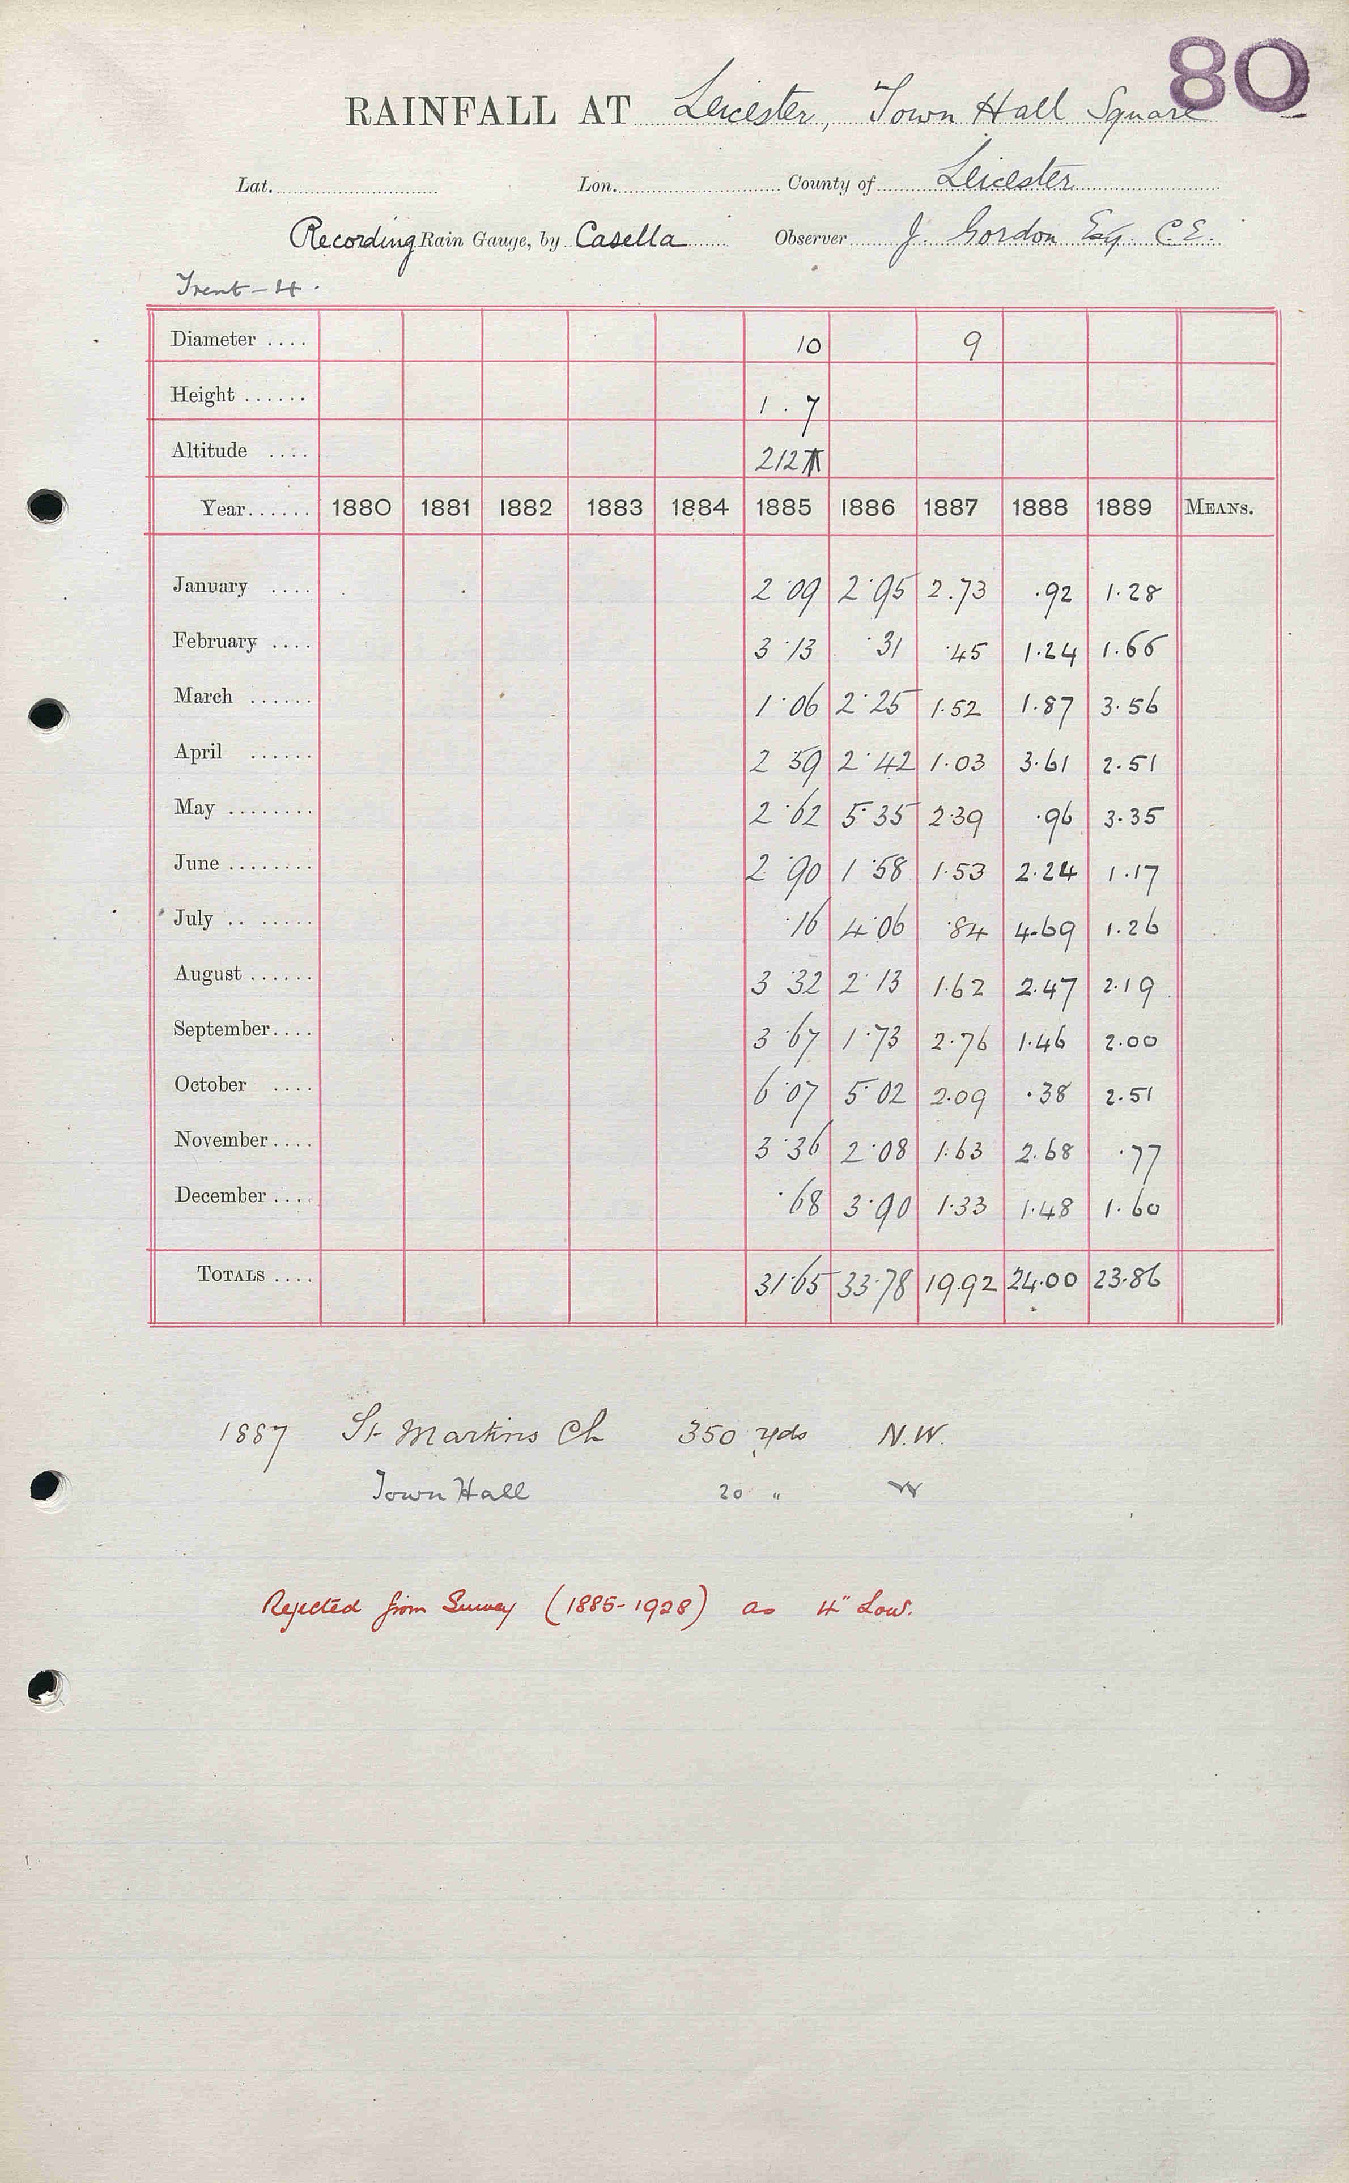 80
RAINFALL AT Leicester, Town Hall Square
Lat. Lon. County of Leicester
Recording Rain Gauge, by Casella Observer J. Gordon Esq. C.E.
Trent - 4.
Diameter .... 10 9
Height ...... 1 . 7
Altitude .... 212
Year...... 1880 1881 1882 1883 1884 1885 1886 1887 1888 1889 MEANS.
January .... 2·09 2·95 2.73 ·92 1·28
February .... 3·13 ·31 ·45 1·24 1·66
March ...... 1·06 2·25 1·52 1·87 3·56
April ...... 2 59 2·42 1·03 3·61 2·51
May ........ 2·62 5·35 2·39 ·96 3·35
June ........ 2·90 1·58 1·53 2·24 1·17
July .. ...... ·16 4·06 ·84 4·69 1·26
August ...... 3·32 2·13 1·62 2·47 2·19
September.... 3·67 1·73 2·76 1·46 2·00
October .... 6·07 5·02 2·09 ·38 2·51
November.... 3·36 2·08 1·63 2·68 ·77
December .... ·68 3·90 1·33 1·48 1·60
TOTALS .... 31·65 33·78 19.92 24·00 23·86
1887 St Martins Ch 350 yds N.W.
Town Hall 20 " W
Rejected from Survey (1885-1928) as 4" Low.